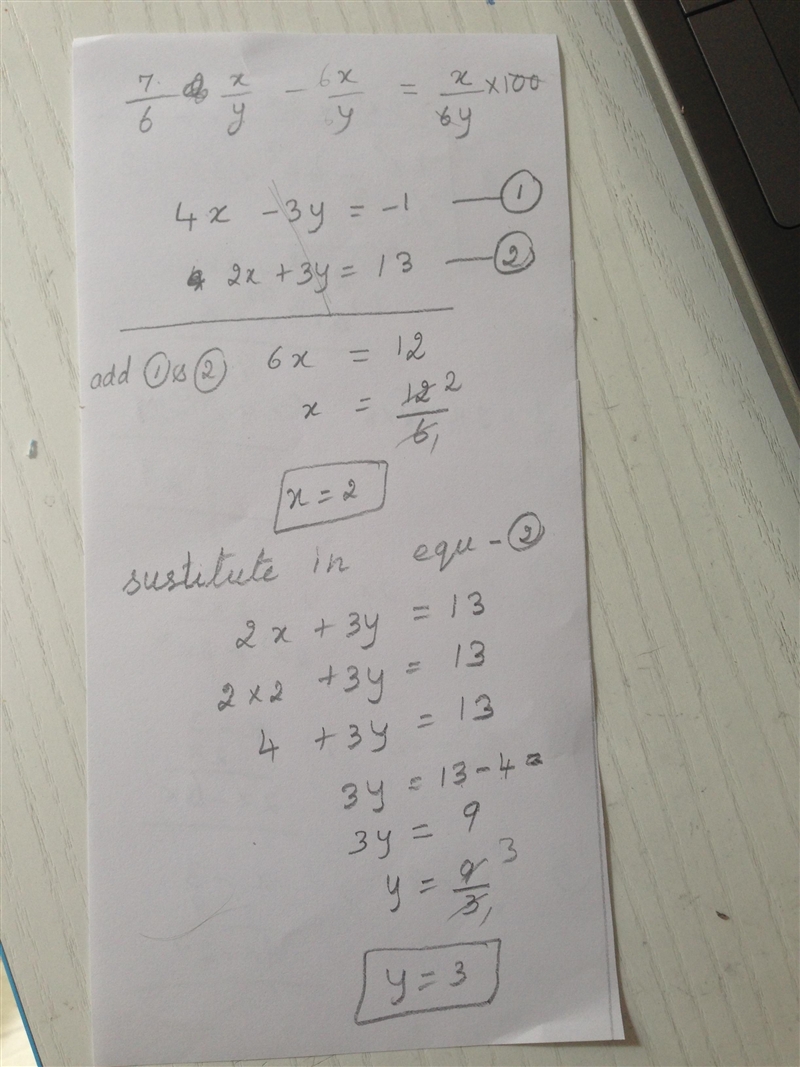 7/6 x/y - 6x/y = x/6y × 100
4x - 3y = -1 — ①
2x + 3y = 13 — ②
add ① & ② 6x = 12
x = 12/6 2 1
x = 2
sustitute in equ - ②
2x + 3y = 13
2 × 2 + 3y = 13
4 + 3y = 13
3y = 13 - 4
3y = 9
y = 9/3 3 1
y = 3